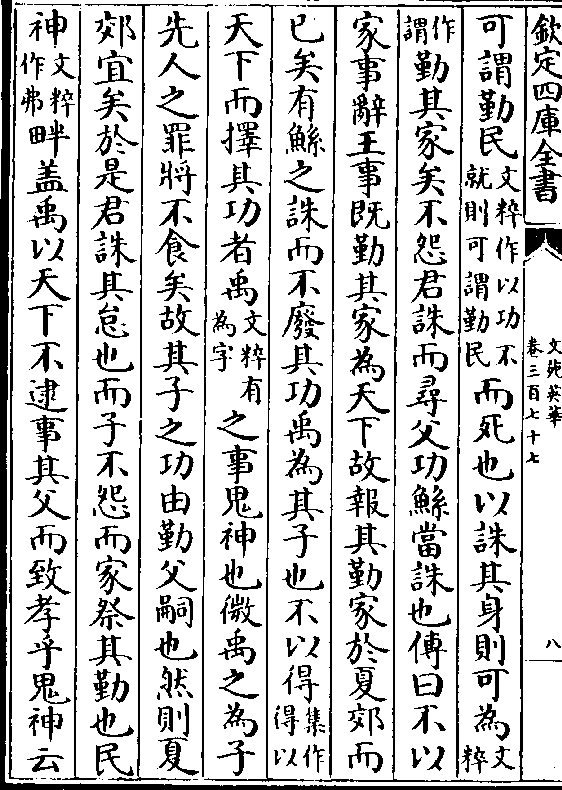 欽定四庫全書
文苑英華
卷三百七十七
八
可謂勤民文粹作以功不就則可謂勤民而死也以誅其身則可為文粹
作謂勤其家矣不怨君誅而尋父功鯀當誅也傳曰不以
家事辭王事既勤其家為天下故報其勤家於夏郊而
已矣有鯀之誅而不廢其功禹為其子也不以得集作得以
天下而擇其功者禹文粹有為字之事鬼神也微禹之為子
先人之罪將不食矣故其子之功由勤父嗣也然則夏
郊宜矣於是君誅其怠也而子不怨而家祭其勤也民
神文粹作弗畔蓋禹以天下不逮事其父而致孝乎鬼神云